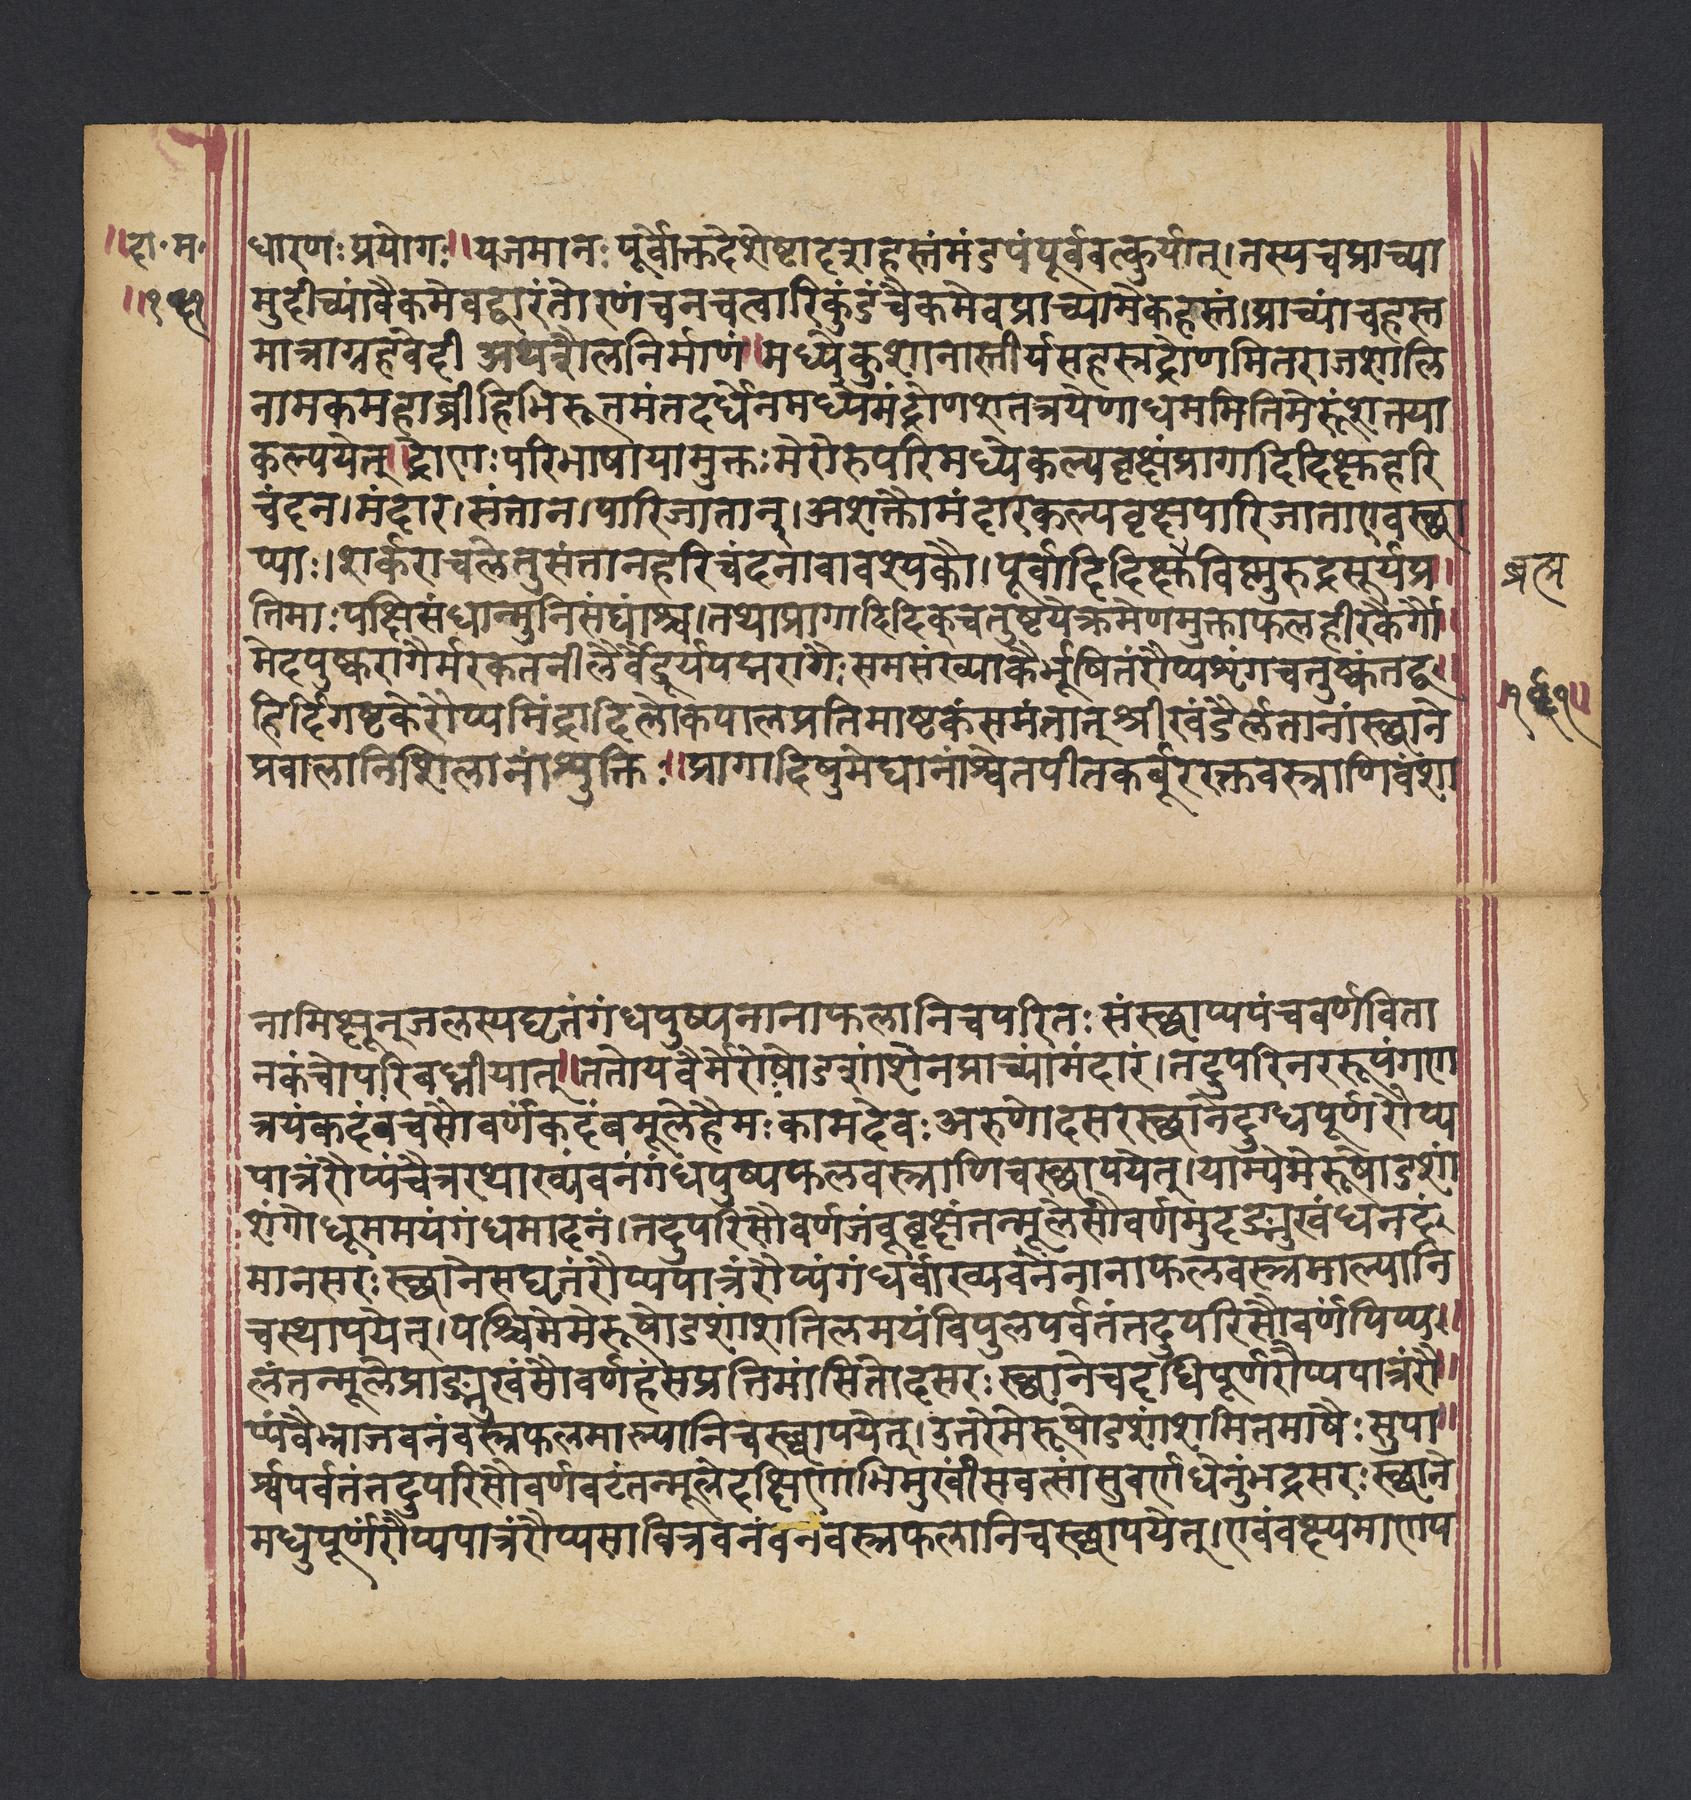 ॥दा॰म॰
॥१६१
धारणः प्रयोगः॥यजमानः पूर्वोक्तदेशेष्टादशहस्तंमंडपंपूर्ववत्कुर्यात्।तस्यचप्राच्या
मुदीच्यांवैकमेवद्वारंतोरणंचनचत्वारिकुंडंचैकमेवप्राच्यामेकहस्तं।प्राच्यांचहस्त
मात्राग्रहवेदी अथशैलनिर्माणं॥मध्येकुशानास्तीर्यसहस्रद्रोणमितराजशालि
नामकमहाव्रीहिभिरूत्तमंतदर्धेनमध्यमंद्रोणशतत्रयेणाधममितिमेरुंशतया
कल्पयेत्॥द्रोणःपरिभाषायामुक्तःमेरोरुपरिमध्येकल्पवृक्षंप्रागादिदिक्षुहरि
चंदन।मंदार।संतान।पारिजातान्।अशक्तौमंदारकल्पवृक्षपारिजाताएवस्था
प्याः।शर्कराचलेतुसंतानहरिचंदनावावश्यकौ।पूर्वादिदिक्षुविष्णुरुद्रसूर्यप्र॥
तिमाःपक्षिसंघान्मुनिसंघांश्च।तथाप्रागादिदिक्चतुष्टयेक्रमेणमुक्ताफलहीरकैर्गो॥
मेदपुष्करागैर्मरकतनीलैर्वैदूर्यपद्मरागैःसमसंख्याकैर्भूषितंरौप्यशृंगचतुष्कंतद्ब॥
हिर्दिगष्टकेरौप्यमिंद्रादिलोकपालप्रतिमाष्टकंसमंतात्श्रीखंडैर्लतानांस्थाने
प्रवालानिशिलानांशुक्तिः॥प्रागादिषुमेघानांश्वेतपीतकर्बूररक्तवस्त्राणिवंशा
ब्रह्म
१६१॥
नामिक्षून्जलस्यघृतंगंधपुष्पनानाफलानिचपरितःसंस्थाप्यपंचवर्णविता
नकंचोपरिबध्नीयात्॥ततोयवैर्मेरोषोडशांशेनप्राच्यांमंदारं।तदुपरिनररूपंगण
त्रयंकदंबचसौवर्णकदंबमूलेहैमःकामदेवःअरुणोदसरस्थानेदुग्धपूर्णरौप्य
पात्रंरौप्यंचैत्ररथाख्यंवनंगंधपुष्पफलवस्त्राणिचस्थापयेत्।याम्येमेरूषोडशां
शंगोधूममयंगंधमादनं।तदुपरिसौवर्णजंबूवृक्षंतन्मूलेसौवर्णमुदङ्मुखंधनदं
मानसरःस्थानेसघृतंरौप्यपात्रंरौप्यंगंधर्वाख्यवनंनानाफलवस्त्रमाल्यानि
चस्थापयेत्।पश्चिमेमेरूषोडशांशतिलमयंविपुलपर्वतंतदुपरिसौवर्णपिप्प॥
लंतन्मूलेप्राङ्मुखंसौवर्णहंसप्रतिमांसितोदसरःस्थानेचदधिपूर्णरौप्यपात्रंरौ॥
प्यंवैभ्राजवनंवस्त्रफलमाल्यानिचस्थापयेत्।उत्तरेमेरूषोडशांशमितमाषैःसुपा॥
र्श्वपर्वतंतदुपरिसौवर्णवटंतन्मूलेदक्षिणाभिमुखींसवत्सांसुवर्णधेनुंभद्रसरःस्थाने
मधुपूर्णरौप्यपात्रंरौप्यसावित्रवनंवनंवस्त्रफलानिचस्थापयेत्।एवंवक्ष्यमाणप